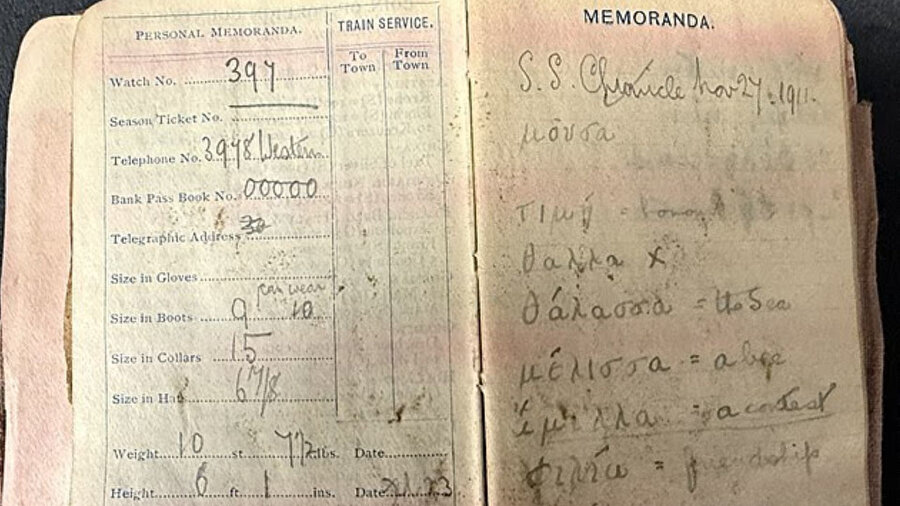 PERSONAL MEMORANDA.
TRAIN SERVICE.
To Town
From Town
Watch No. 397
Season Ticket No.
Telephone No. 3948 Western
Bank Pass Book No. 00000
Telegraphic Address 30
Size in Gloves
can wear
Size in Boots 9 10
Size in Collars 15
Size in Hat 6 7/8
Weight 10 st. lbs. Date
Height 6 ft. 1 ins. Date
MEMORANDA.
S.S. Chronicle Nov 27. 1911.
μουσα
τιμή = honour
θαλλα x
θάλασσα = the Sea
μέλισσα = a bee
= a contest
= friendship